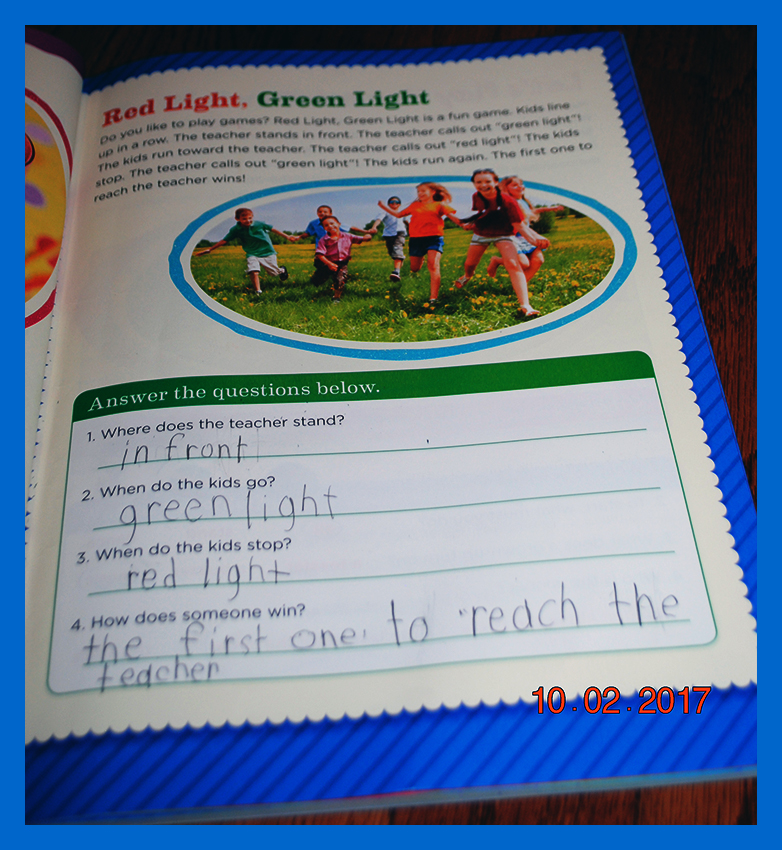 Red Light, Green Light
Do you like to play games? Red Light, Green Light is a fun game. Kids line
up in a row. The teacher stands in front. The teacher calls out "green light"!
The kids run toward the teacher. The teacher calls out "red light"! The kids
stop. The teacher calls out "green light"! The kids run again. The first one to
reach the teacher wins!
Answer the questions below.
1. Where does the teacher stand?
in front
2. When do the kids go?
green light
3. When do the kids stop?
red light
4. How does someone win?
the first one to reach the
teacher
10.02.2017